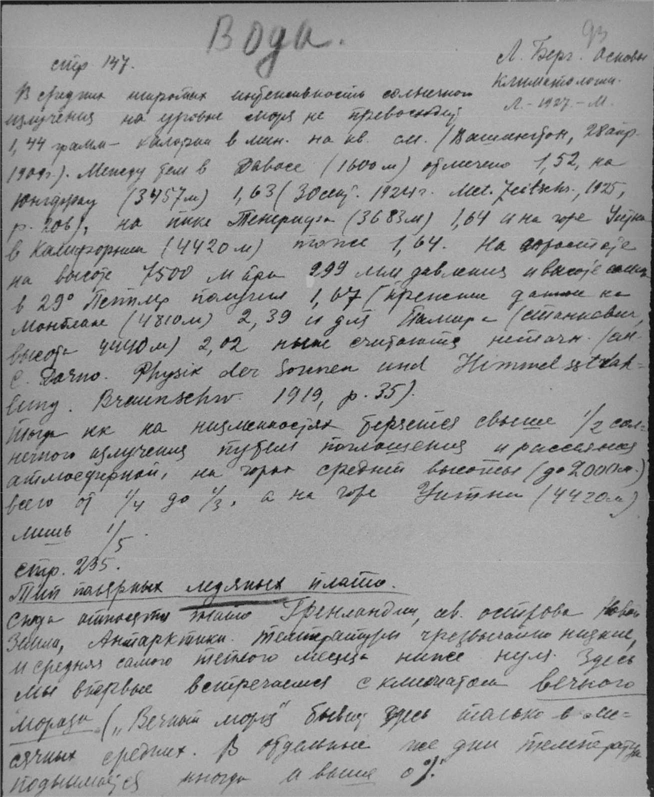 93
Вода.
стр 147.
Л. Берг. Основы
Климатологии.
Л. - 1927. - М.
В средних широтах интенсивность солнечного
излучения на уровне моря не превосходит
1,44 грамм-калории в мин. на кв. см. (Вашингтон, 28 апр.
1909 г.). Между тем в Давосе (1600 м) отмечено 1,52, на
Юнгфрау (3457 м) 1,63 (30 сент. 1924 г. Met. Zeitschr., 1925,
p. 206), на пике Тенериф (3683 м) 1,64 и на горе Уитни
в Калифорнии (4420 м) тоже 1,64. На аэростате
на высоте 7500 м при 299 мм давления и высоте солнца
в 29° Пепплер получил 1,67 (прежние данные на
Монблане (4810 м) 2,39 и для Памира (Станкевич,
высота 4440 м) 2,02 ныне считаются неточн. (см.
C. Dorno. Physik der Sonnen und Himmelsstrah-
lung. Braunschw. 1919, p. 35).
Тогда как на низменностях теряется свыше 1/2 сол-
нечного излучения путем поглощения и рассеяния
атмосферной, на горах средней высоты (до 2000 м.)
всего от 1/4 до 1/3, а на горе Уитни (4420 м)
лишь 1/5.
стр. 235.
Тип полярных ледяных плато.
Сюда относятся плато Гренландии, сев. острова Новой
Земли, Антарктики. Температуры чрезвычайно низкие,
и средняя самого теплого месяца ниже нуля. Здесь
мы впервые встречаемся с климатом вечного
мороза („Вечный мороз" бывает здесь только в ме-
сячных средних. В отдельные же дни температура
поднимается иногда и выше 0°.